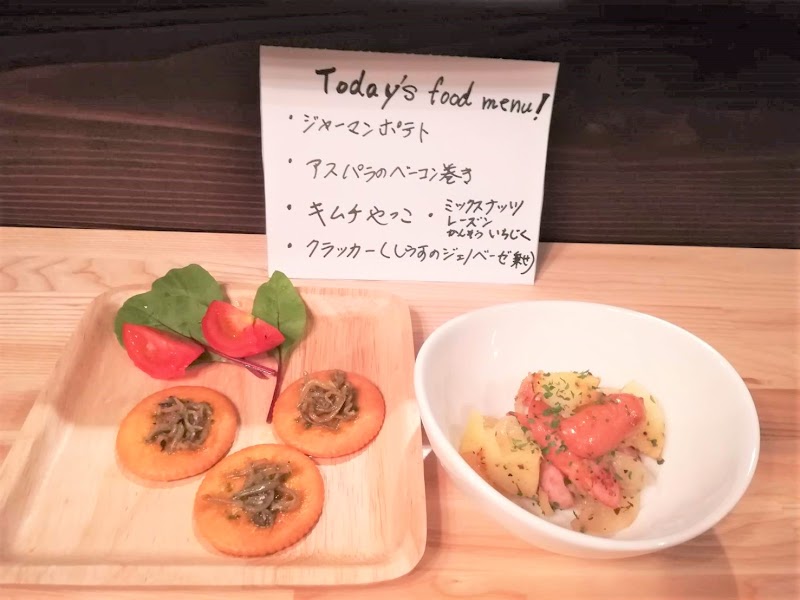 Today's food menu!
・ジャーマンポテト
・アスパラのベーコン巻き
・キムチやっこ ・ミックスナッツ
レーズン
かんそう いちじく
・クラッカー(しらすのジェノベーゼ乗せ)